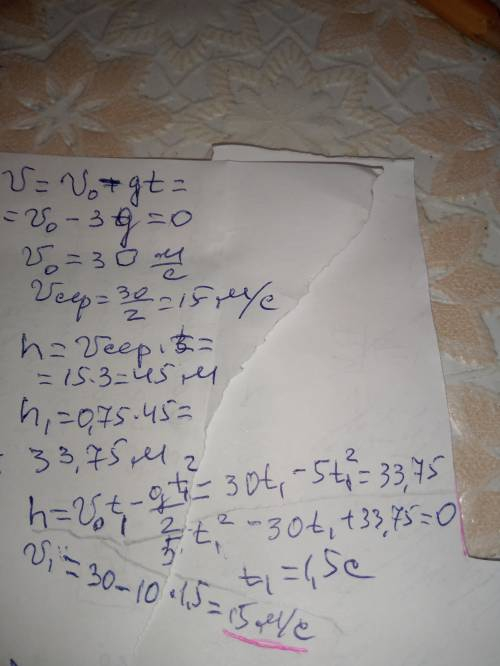 V = V₀ - gt =
= V₀ - 3g = 0
V₀ = 30 м/с
Vср = 30/2 = 15 м/с
h = Vср · t =
= 15·3 = 45 м
h₁ = 0,75·45 =
= 33,75 м
h = V₀t₁ - gt₁²/2 = 30t₁ - 5t₁² = 33,75
5t₁² - 30t₁ + 33,75 = 0
t₁ = 1,5 с
V₁ = 30 - 10·1,5 = 15 м/с